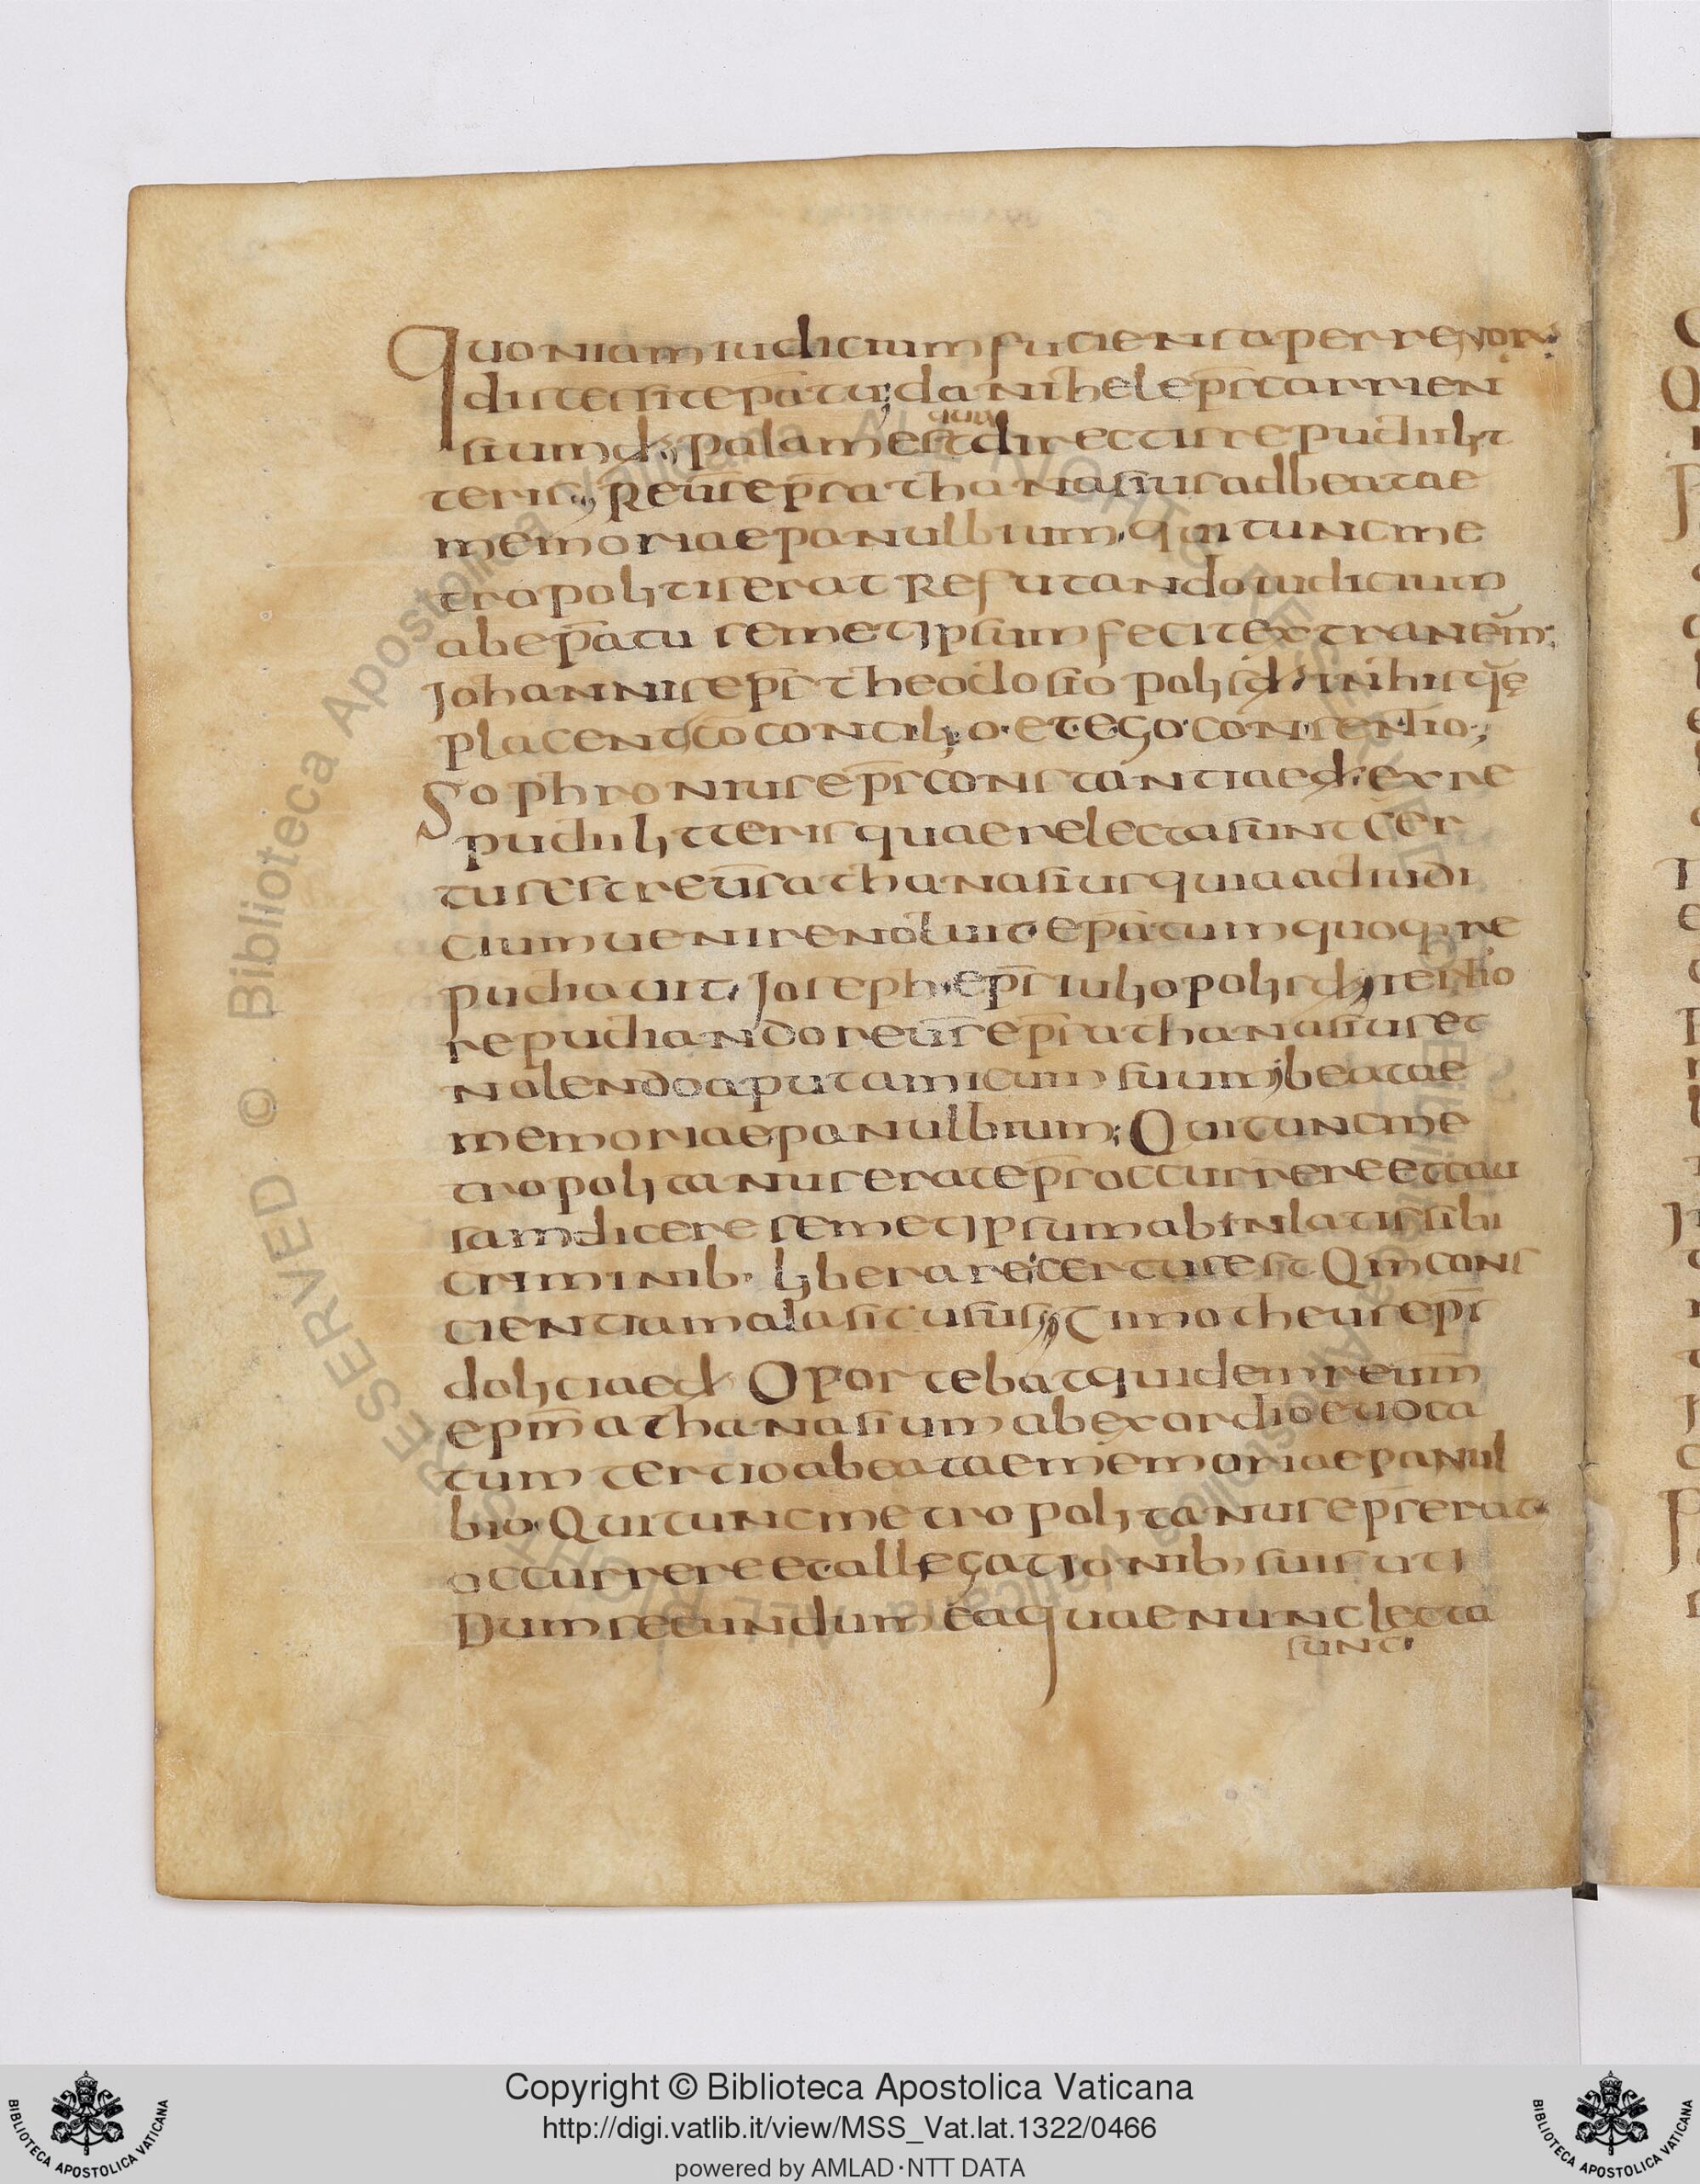 Quoniam iudicium fuciens a perrenor
distessit ep̄atu; danihel ep̄s carrien
sium d; palam est quia directis repudii lit
teris; Reū̄s ep̄s athanasius ad beatae
memoriae panulbium, qui tunc me
tropolitis erat Refutando iudicium
ab ep̄atu semetipsum fecit extraneū̄m;
Johannis ep̄s theodosiopolis d; in his quę
placent s̄c̄o concilio et ego consentio;
Sophronius ep̄s constantiae d; ex re
pudii litteris quae relecta sunt cer
tus est reū̄s athanasius quia ad iudi
cium uenire noluit ep̄atum quoq; re
pudiauit, Joseph ep̄s iuliopolis d; tertio
repudiando reū̄s ep̄s athanasius et
nolendo aput amicum suum, beatae
memoriae panulbium; Qui tunc me
tropolitanus erat ep̄s occurrere et cau
sam dicere semetipsum ab inlatis sibi
criminib; liberare; certus est Qm̄ cons
cientia mala sit usus; Timotheus ep̄s
doliciae d; Oportebat quidem reum̄
ep̄m̄ athanasium ab exordio euoca
tum tertio a beatae memoriae panul
bio Qui tunc metropolitanus ep̄s erat
occurrere et allegationib; suis uti
Dum secundum ea quae nunc lecta
sunt
© Biblioteca Apostolica Vaticana ALL RIGHTS RESERVED
Copyright © Biblioteca Apostolica Vaticana
http://digi.vatlib.it/view/MSS_Vat.lat.1322/0466
powered by AMLAD·NTT DATA
BIBLIOTECA APOSTOLICA VATICANA
BIBLIOTECA APOSTOLICA VATICANA